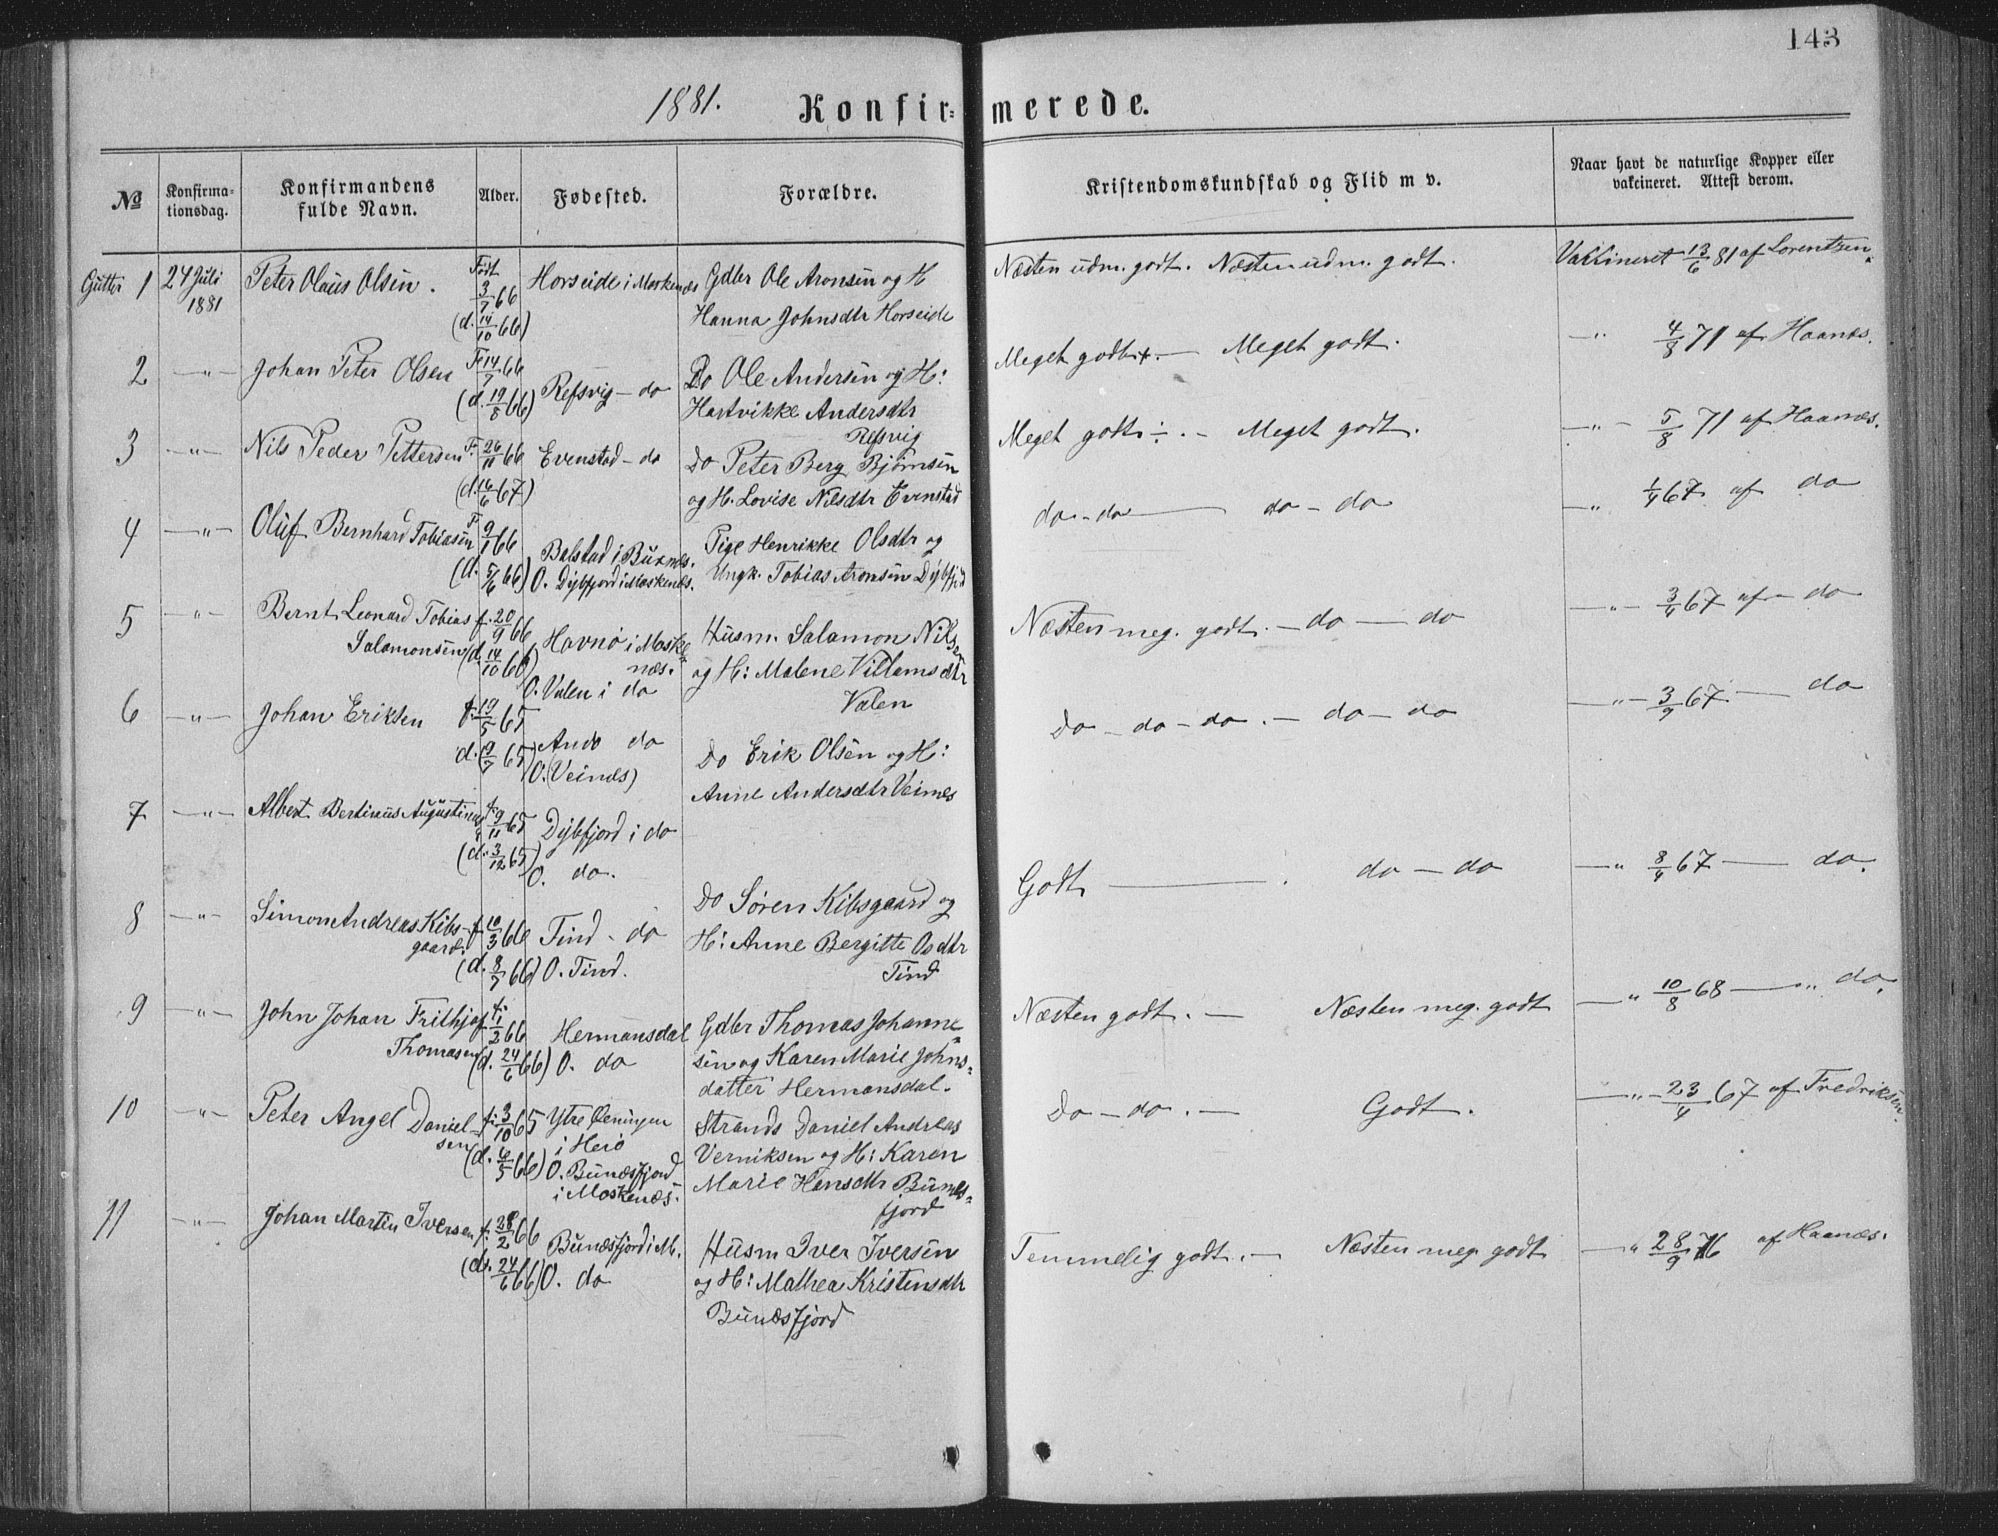 143
1881. Konfir= merede.
№
Konfirma-
tionsdag.
Konfirmandens
fulde Navn.
Alder.
Fødested.
Forældre.
Kristendomskundskab og Flid m v.
Naar havt de naturlige Kopper eller
vakcineret. Attest derom.
Gutter 1
24 Juli
1881
Peter Olaus Olsen.
Født
3/7 66
(d. 14/10 66)
Horseide i Moskenæs
Gdbr Ole Aronsen og H
Hanna Johnsdtr Horseide
Næsten udm. godt. Næsten udm. godt.
Vakkineret 13/6 81 af Lorentzen.
2 —"—
Johan Peter Olsen
F. 14/7 66
(d. 19/8 66)
Refsvig — do
Do Ole Andersen og H:
Hartvikke Andersdtr
Refsvig
Meget godt+. — Meget godt.
—" 4/8 71 af Haanæs.
3 —"—
Nils Peder Pettersen
F. 26/11 66
(d. 16/6 67)
Evenstad — do
Do Peter Berg Bjørnsen
og H. Lovise Nilsdtr Evenstad
Meget godt÷. — Meget godt.
—"— 5/8 71 af Haanæs.
4 —"—
Oluf Bernhard Tobiasen
F. 9/1 66
(d. 5/6 66)
Balstad i Buxnæs.
O. Dybfjord i Moskenæs.
Pige Henrikke Olsdtr og
Ungk. Tobias Aronsen Dybfjord
do — do — do — do
—" 1/9 67 af do
5 —"—
Bernt Leonard Tobias
Salamonsen
f. 20/9 66
(d. 14/10 66)
Havnø i Moske=
næs.
O. Valen i do
Husm. Salamon Nilsen
og H: Malene Villamsdtr
Valen
Næsten meg. godt. — do — do
—"— 3/9 67 af — do
6 —"—
Johan Eriksen
f. 19/5 65
d. (9/7 65)
And do
O. (Veines)
Do Erik Olsen og H:
Anne Andersdtr Veines
Do — do — do. — do — do
—"— 3/9 67 — do
7 —"—
Albert Bertinus Augustinus
f. 9/11 65
(d. 3/12 65)
Dybfjord i do
O. do.
Godt — . do — do
—" 8/9 67 — do.
8 —"—
Simon Andreas Kibs-
gaard.
f. 10/3 66
(d. 8/7 66)
Tind — do
O. Tind.
Do Søren Kibsgaard og
H: Anne Bergitte Osdtr
Tind
Næsten godt. — Næsten meg. godt
—" 10/8 68 —" do.
9 —"—
John Johan Frithjof
Thomasen
f. 1/2 66
(d. 24/6 66)
Hermansdal
O. do
Gdbr Thomas Johanne=
sen og Karen Marie Johns=
datter Hermansdal.
Do — do. — Godt.
—"— 23/4 67 af Fredriksen.
10 —"—
Peter Angel Daniel-
sen
f. 3/10 65
(d. 6/5 66)
Ytre
i Herø
O. Bunæsfjord
i Moskenæs.
Strands Daniel Andreas
Verniksen og H: Karen
Marie Hansdtr Bunæs=
fjord
11 —"—
Johan Martin Iversen
f. 28/2 66
(d. 24/6 66)
Bunæsfjord i M.
O. do
Husm Iver Iversen
og H: Mathea Kristensdtr
Bunæsfjord
Temmelig godt. — Næsten meg. godt
—" 28/9 76 af Haanæs.